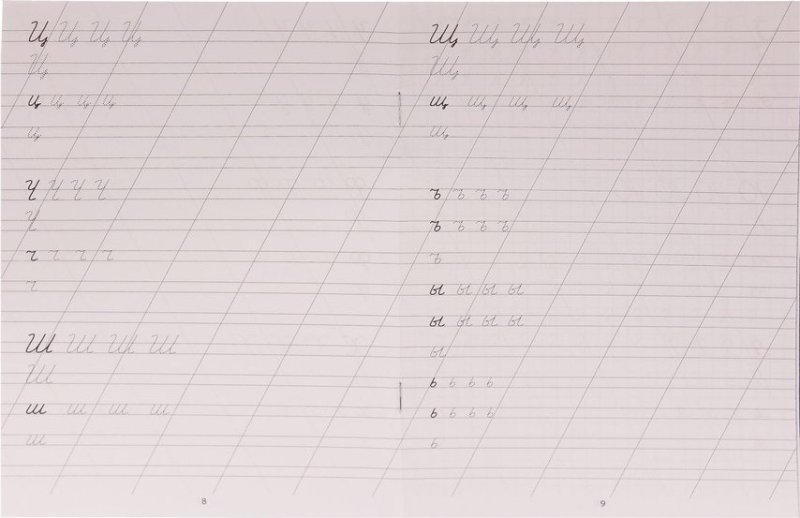 Ц Ц Ц Ц
Ц
ц ц ц ц
ц
Ч Ч Ч Ч
Ч
ч ч ч ч
ч
Ш Ш Ш Ш
Ш
ш ш ш ш
ш
8
Щ Щ Щ Щ
Щ
щ щ щ щ
щ
ъ ъ ъ ъ
ъ ъ ъ ъ
ъ
ы ы ы ы
ы ы ы ы
ы
ь ь ь ь
ь ь ь ь
ь
9